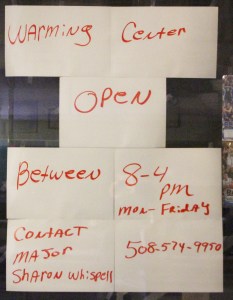 WARMING Center
OPEN
Between 8-4
PM
MON-Friday
CONTACT
MAJOR
SHARON Whispell
508-574-9950